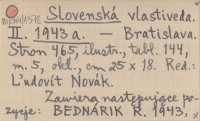 Slovenská vlastiveda.
II. 1943 a. — Bratislava.
Stron 465, ilustr., tabl. 144,
m. 5, okł., cm 25 x 18. Red.:
Ľudovít Novák.
Zawiera następujące po-
zycje: BEDNÁRIK R. 1943,